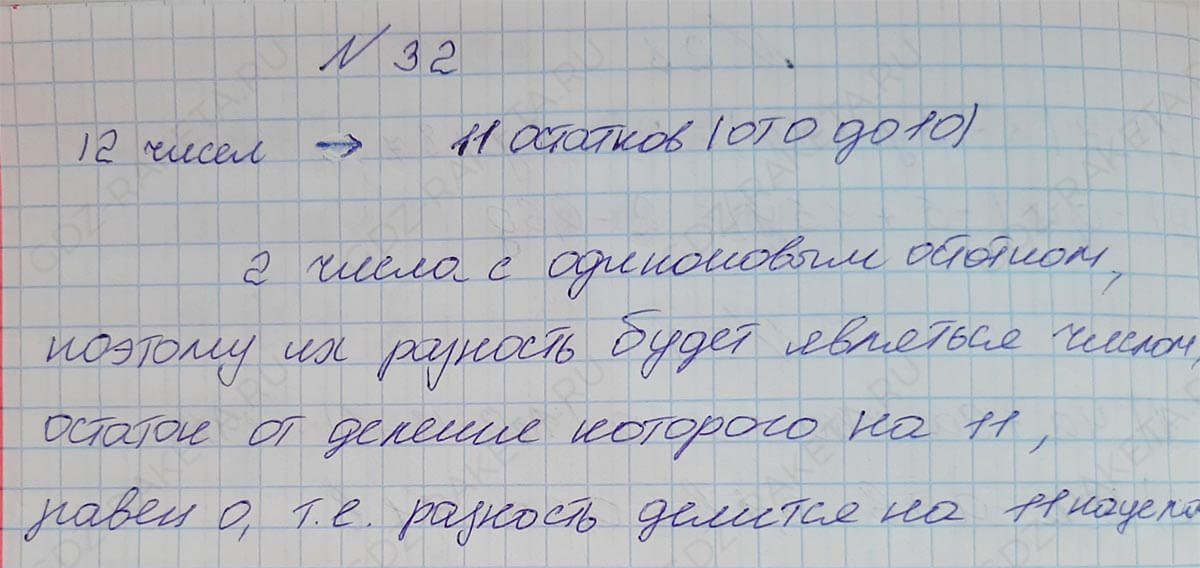 N 32
12 чисел → 11 остатков (от 0 до 10)
2 числа с одинаковым остатком,
поэтому их разность будет являться числом,
остаток от деление которого на 11,
равен 0, т.е. разность делится на 11 нацело